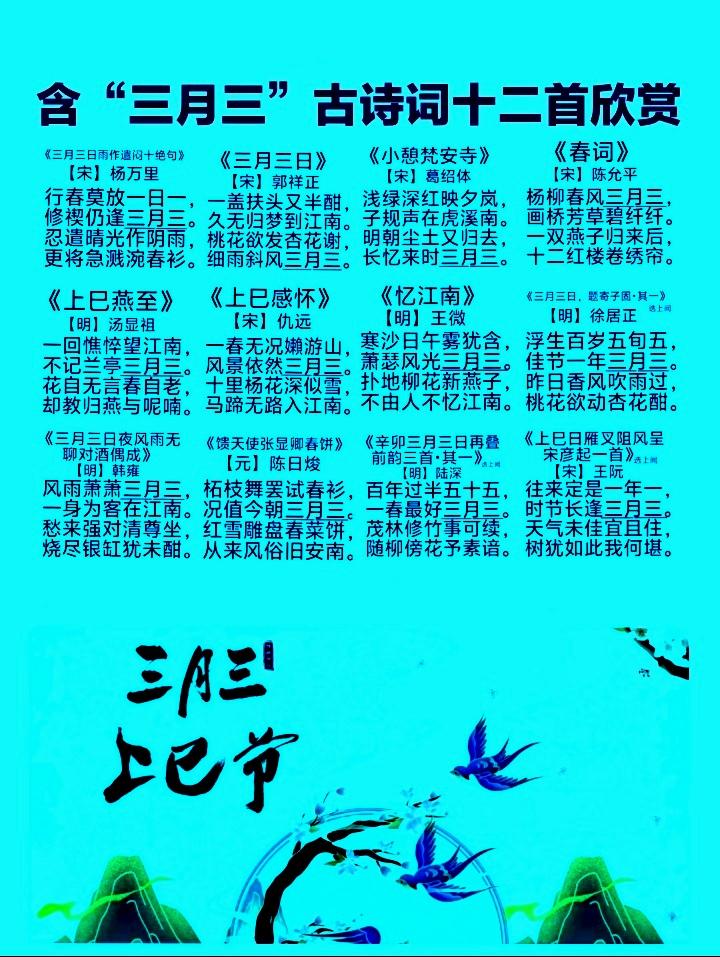 含“三月三”古诗词十二首欣赏
《三月三日雨作遣闷十绝句》
【宋】杨万里
行春莫放一日一，
修禊仍逢三月三。
忍遣晴光作阴雨，
更将急溅涴春衫。
《三月三日》
【宋】郭祥正
一盖扶头又半酣，
久无归梦到江南。
桃花欲发杏花谢，
细雨斜风三月三。
《小憩梵安寺》
【宋】葛绍体
浅绿深红映夕岚，
子规声在虎溪南。
明朝尘土又归去，
长忆来时三月三。
《春词》
【宋】陈允平
杨柳春风三月三，
画桥芳草碧纤纤。
一双燕子归来后，
十二红楼卷绣帘。
《上巳燕至》
【明】汤显祖
一回憔悴望江南，
不记兰亭三月三。
花自无言春自老，
却教归燕与呢喃。
《上巳感怀》
【宋】仇远
一春无况嬾游山，
风景依然三月三。
十里杨花深似雪，
马蹄无路入江南。
《忆江南》
【明】王微
寒沙日午雾犹含，
萧瑟风光三月三。
扑地柳花新燕子，
不由人不忆江南。
《三月三日，题寄子固·其一》
选上阙
【明】徐居正
浮生百岁五旬五，
佳节一年三月三。
昨日香风吹雨过，
桃花欲动杏花酣。
《三月三日夜风雨无
聊对酒偶成》
【明】韩雍
风雨萧萧三月三，
一身为客在江南。
愁来强对清尊坐，
烧尽银缸犹未酣。
《馈天使张显卿春饼》
【元】陈日烄
柘枝舞罢试春衫，
况值今朝三月三。
红雪雕盘春菜饼，
从来风俗旧安南。
《辛卯三月三日再叠
前韵三首·其一》选上阙
【明】陆深
百年过半五十五，
一春最好三月三。
茂林修竹事可续，
随柳傍花予素谙。
《上巳日雁叉阻风呈
宋彦起一首》选上阙
【宋】王阮
往来定是一年一，
时节长逢三月三。
天气未佳宜且住，
树犹如此我何堪。
三月三
上巳节